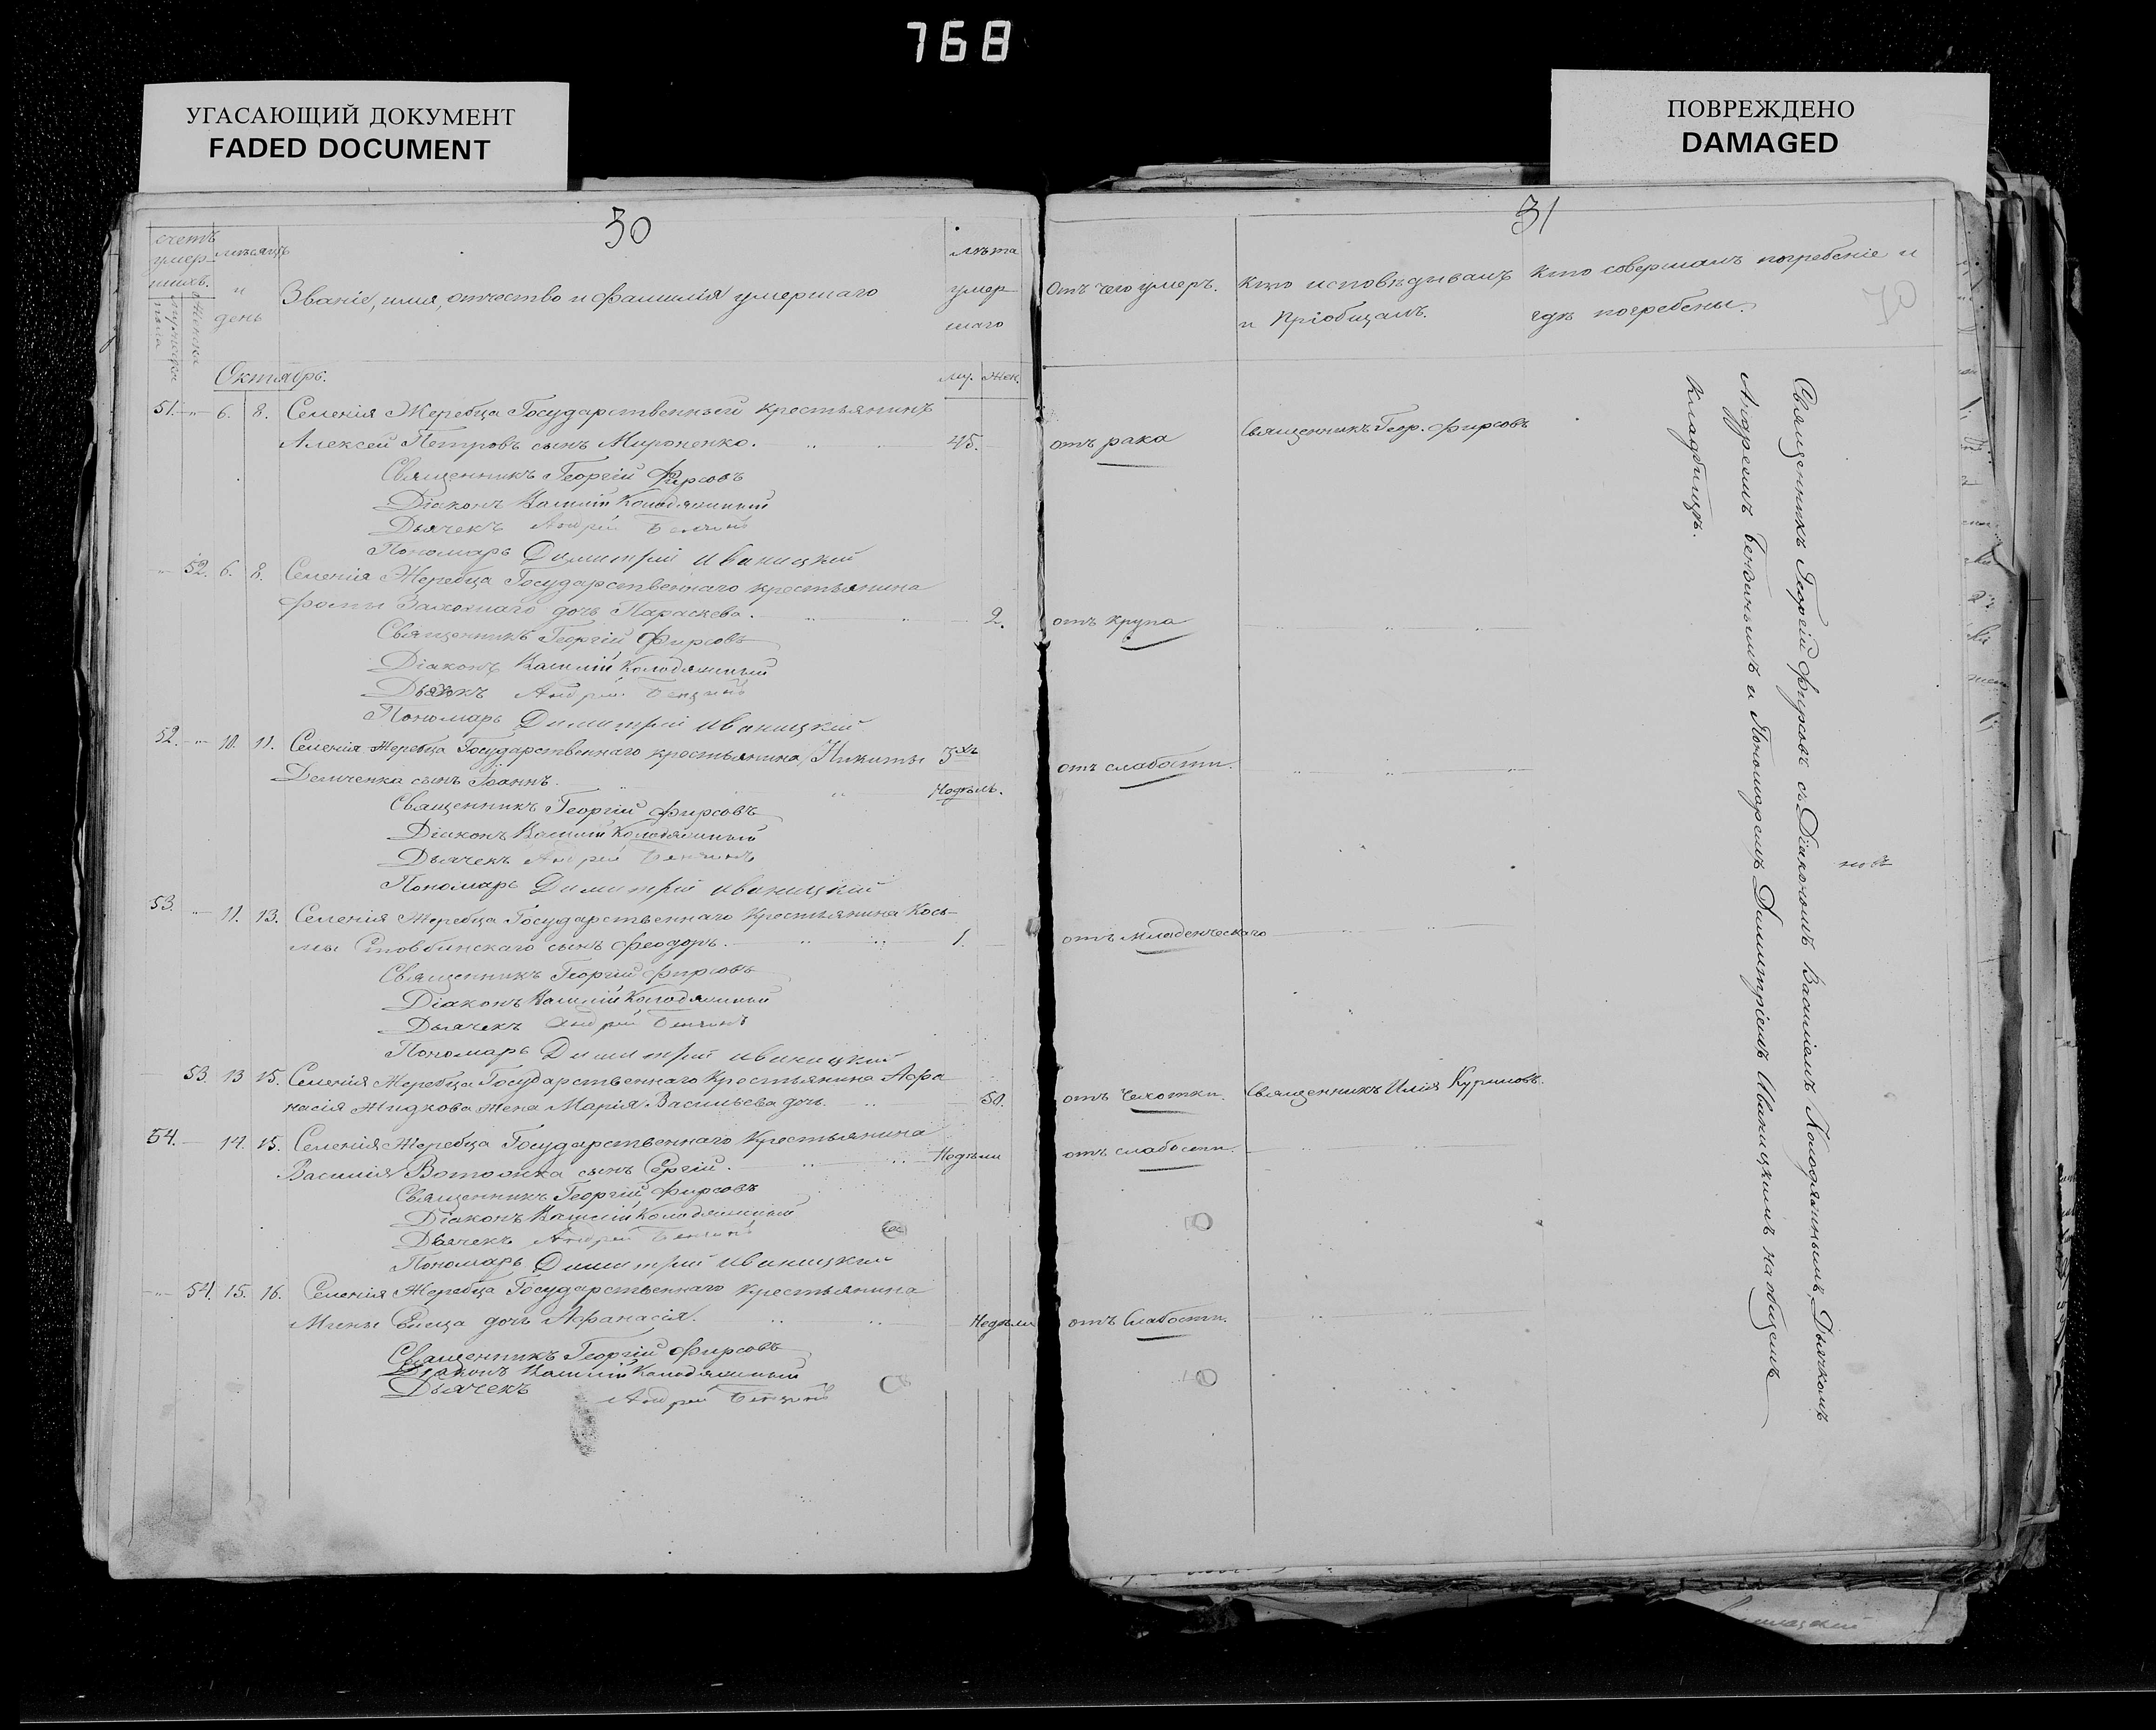 768
УГАСАЮЩИЙ ДОКУМЕНТ
FADED DOCUMENT
ПОВРЕЖДЕНО
DAMAGED
30
счетъ умер-шихъ.
Мужеска пола
Женска
мѣсяцъ и день
Званіе, имя, отчество и фамилія умершаго
лѣта умер-шаго
Октябрь.
му. жен.
51. " 6. 8. Селенія Жеребца Государственный крестьянинъ
Алексей Петровъ сынъ Мироненко. 45.
Священникъ Георгій Фирсовъ
Діаконъ Василій Колодяжный
Дьячекъ Андрей
Пономарь Димитрій Иваницкій
" 52. 6. 8. Селенія Жеребца Государственнаго крестьянина
Фомы дочь Параскева. 2.
Священникъ Георгій Фирсовъ
Діаконъ Василій Колодяжный
Дьячекъ Андрей
Пономарь Димитрій Иваницкій
52. " 10. 11. Селенія Жеребца Государственнаго крестьянина Никиты 3хъ
Демченка сынъ Іоаннъ. Недѣль.
Священникъ Георгій Фирсовъ
Діаконъ Василій Колодяжный
Дьячекъ Андрей
Пономарь Димитрій Иваницкій
53. " 11. 13. Селенія Жеребца Государственнаго Крестьянина Кось-
мы сынъ Феодоръ. 1.
Священникъ Георгій Фирсовъ
Діаконъ Василій Колодяжный
Дьячекъ Андрей
Пономарь Димитрій Иваницкій
53. 13 15. Селенія Жеребца Государственнаго Крестьянина Афа
насія Жидкова жена Марія Васильева дочь. 50.
54. 14. 15. Селенія Жеребца Государственнаго Крестьянина
Василія сынъ Сергій. Недѣли
Священникъ Георгій Фирсовъ
Діаконъ Василій Колодяжный
Дьячекъ Андрей
Пономарь Димитрій Иваницкій
" 54. 15. 16. Селенія Жеребца Государственнаго Крестьянина
Мины дочь Афанасія. Недѣли
Священникъ Георгій Фирсовъ
Діаконъ Василій Колодяжный
Дьячекъ
Андрей
31
Отъ чего умеръ.
Кто исповѣдывалъ
и Пріобщалъ.
Кто совершалъ погребеніе и
гдѣ погребены.
70
отъ рака
Священникъ Геор. Фирсовъ
отъ крупа
отъ слабости.
отъ младенческаго
отъ Чахотки.
Священникъ Илія Куриловъ.
отъ слабости.
отъ Слабости.
Священникъ Георгій Фирсовъ съ Діакономъ Василіемъ Колодяжнымъ, Дьячкомъ
Андреемъ и Пономаремъ Димитріемъ Иваницкимъ на общемъ
Кладбищѣ.